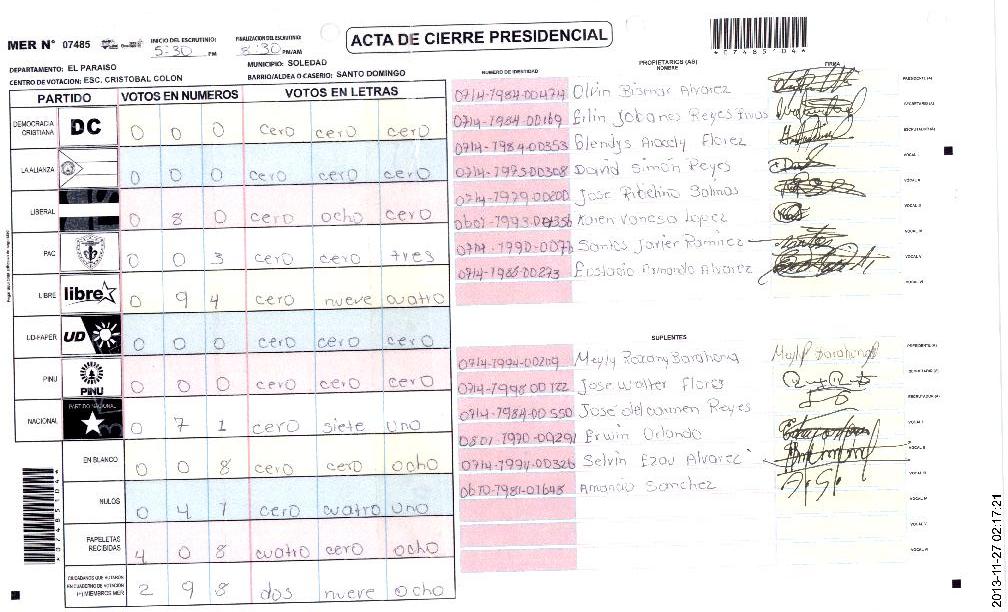 MER N° 07485
INICIO DEL ESCRUTINIO: 5:30 PM
FINALIZACION DEL ESCRUTINIO: 8:30 PM/AM
ACTA DE CIERRE PRESIDENCIAL
*0748510 4*
DEPARTAMENTO: EL PARAISO
MUNICIPIO: SOLEDAD
CENTRO DE VOTACION: ESC. CRISTOBAL COLON
BARRIO/ALDEA O CASERIO: SANTO DOMINGO
PARTIDO VOTOS EN NUMEROS VOTOS EN LETRAS
DEMOCRACIA CRISTIANA DC 0 0 0 cero cero cero
LA ALIANZA 0 0 0 cero cero cero
LIBERAL 0 8 0 cero ocho cero
PAC 0 0 3 cero cero tres
LIBRE libre 0 9 4 cero nueve cuatro
UD-FAPER UD 0 0 0 cero cero cero
PINU PINU 0 0 0 cero cero cero
NACIONAL PARTIDO NACIONAL 0 7 1 cero siete uno
EN BLANCO 0 0 8 cero cero ocho
NULOS 0 4 1 cero cuatro uno
PAPELETAS RECIBIDAS 4 0 8 cuatro cero ocho
CIUDADANOS QUE VOTARON EN CUADERNO DE VOTACION (+) MIEMBROS MER 2 9 8 dos nueve ocho
NUMERO DE IDENTIDAD PROPIETARIOS (AS) NOMBRE FIRMA
0714-1984-00474 Olvin Bismar Alvarez PRESIDENTE (A)
0714-1984-00169 Eilin Johanes Reyes Rivas SECRETARIO (A)
0714-1984-00353 Glendys Aracely Florez ESCRUTADOR (A)
0714-1975-00308 David Simón Reyes VOCAL I
0714-1979-00200 Jose Salinas VOCAL II
Karen Vanesa Lopez VOCAL III
Santos Javier Ramirez VOCAL IV
0714-1986-00273 Eustacio Armando Alvarez VOCAL V
VOCAL VI
SUPLENTES
0714-1994-00209 Meyly Roxany Barahona Meyly Barahona PRESIDENTE (A)
0714-1998 00122 Jose Walter Flores SECRETARIO (A)
0714-1984-00550 Jose del carmen Reyes ESCRUTADOR (A)
0801-1970-09291 Erwin Orlando VOCAL I
0714-1994-00326 Selvin Esau Alvarez VOCAL II
Amancio Sanchez VOCAL III
VOCAL IV
VOCAL V
VOCAL VI
2013-11-27 02:17:21